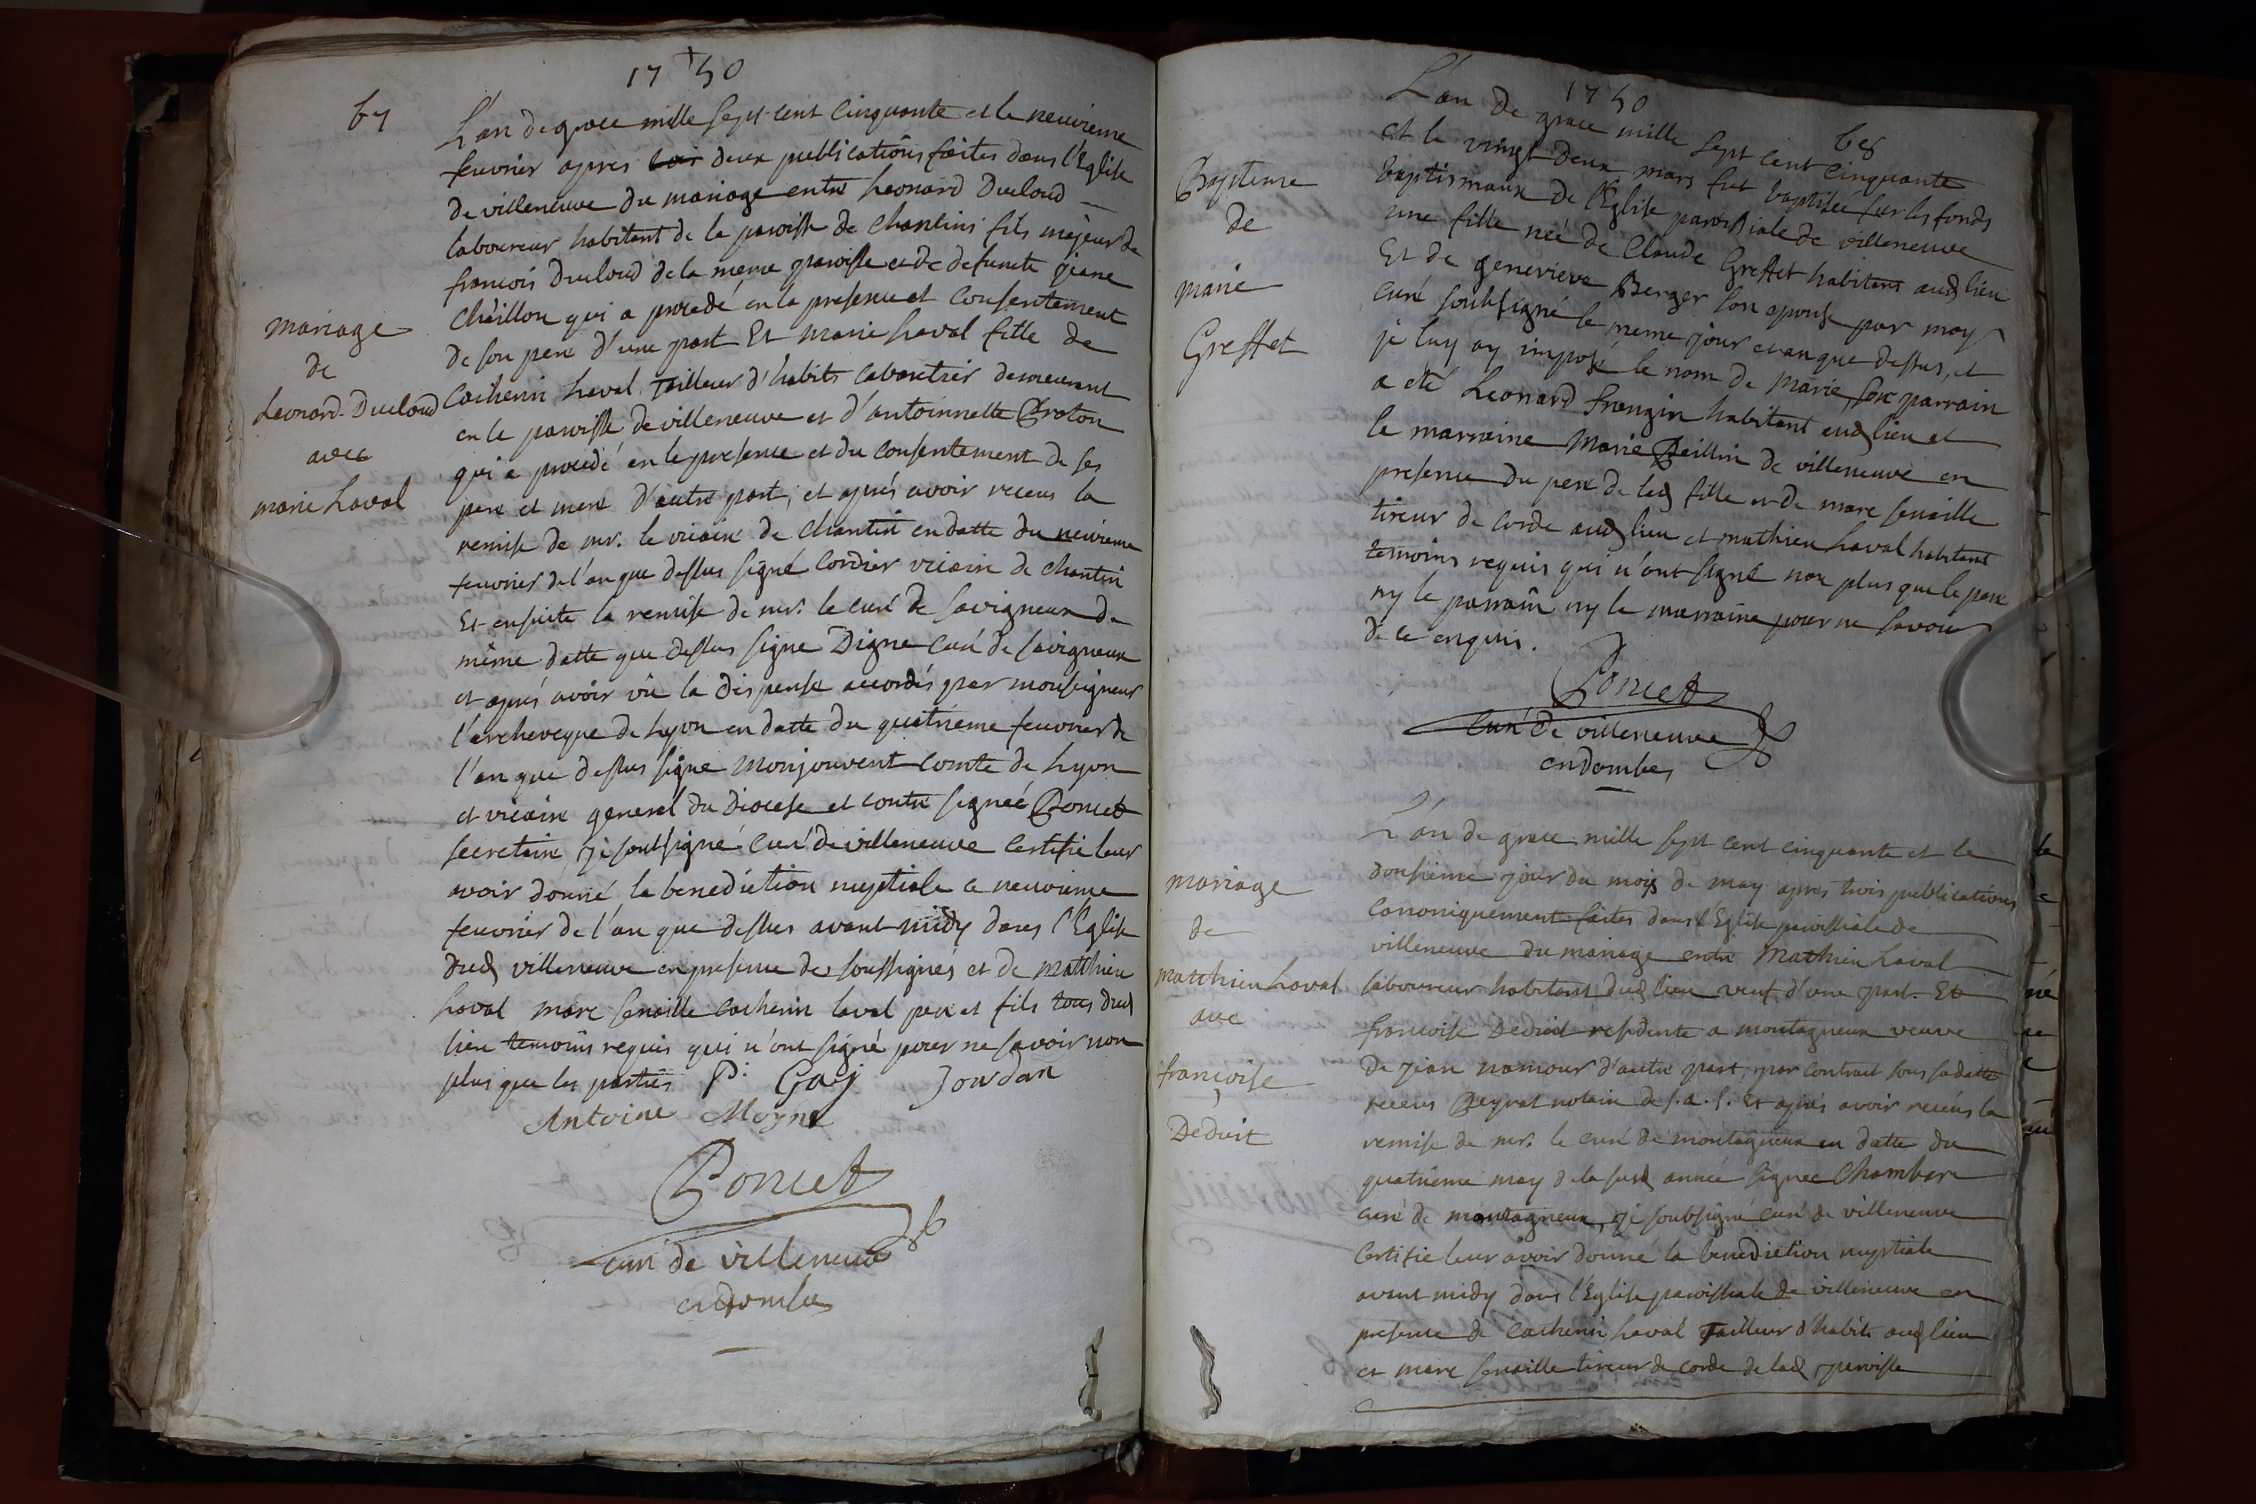 1750
67
L'an de grace mille sept cent cinquante et le neuvieme
feuvrier apres deux publications faites dans l'Eglise
de villeneuve du mariage entre Leonard Ducloud
laboureur habitant de la paroisse de Chanteins fils majeur de
francois Ducloud de la meme paroisse et de defuncte Jeane
Chaillon qui a procedé en la presence et consentement
de son pere d'une part Et Marie Laval fille de
Catherin Laval Tailleur d'habits cabaretier demeurant
en la paroisse de villeneuve et d'antoinnette Broton
qui a procedé en la presence et du consentement de ses
pere et mere d'autre part, et aprés avoir receus la
remise de mr. le vicaire de Chantin en datte du neuvieme
feuvrier de l'an que dessus signé Cordier vicaire de Chantin
Et ensuite la remise de mr. le curé de Savigneux de
même datte que dessus signe Digne curé de Savigneux
et aprés avoir vûe la dispense accordés par monseigneur
l'archeveque de Lyon en datte du quatrieme feuvrier de
l'an que dessus signe Monjouvent comte de Lyon
et vicaire general du Diocese et contre signée Poncet
secretaire je soubsigné Curé de villeneuve certifie leur
avoir donné la benediction nuptiale ce neuvieme
feuvrier de l'an que dessus avant midy dans l'Eglise
dud villeneuve en presence des soussignés et de Matthieu
Laval marc senaille catherin laval pere et fils tous dud
lieu temoins requis qui n'ont signé pour ne savoir non
plus que les parties P. Gay Jourdan
Antoine Moyne
Poncet
curé de villeneuve
en dombes
mariage
de
Leonard Ducloud
avec
marie Laval
1750
68
L'an de grace mille sept cent cinquante
et le vingt deux mars fut baptisée sur les fonds
baptismaux de l'Eglise paroissiale de villeneuve
une fille née de Claude Greffet habitant aud lieu
Et de genevieve Berger son epouse par moy
curé soubsigné le meme jour et an que dessus, et
je luy ay imposé le nom de Marie, son parrain
a eté Leonard frangin habitant aud lieu et
la marraine Marie Baillin de villeneuve en
presence du pere de lad fille et de marc senaille
tireur de corde aud lieu et mathieu Laval habitant
temoins requis qui n'ont signé non plus que le pere
ny le parrain ny la marraine pour ne savoir
de ce enquis.
Poncet
curé de villeneuve
en dombes
Bapteme
de
marie
Greffet
L'an de grace mille sept cent cinquante et le
doussieme jour du mois de may apres trois publications
canoniquement faites dans l'Eglise paroissiale de
villeneuve du mariage entre Mathieu Laval
laboureur habitant dud lieu veuf d'une part. Et
francoise Deduit residente a montagneux veuve
de jean namour d'autre part, par contract sous sa datte
receus Peyrat notaire de s. a. s. Et aprés avoir receus la
remise de mr. le curé de montagneux en datte du
quatrieme may de la susd année signée Chambere
curé de montagneux, je soubsigné curé de villeneuve
certifie leur avoir donné la benediction nuptiale
avant midy dans l'Eglise paroissiale de villeneuve en
presence de Catherin Laval Tailleur d'habits aud lieu
et marc senaille tireur de corde de lad paroisse
mariage
de
Matthieu Laval
avec
francoise
Deduit